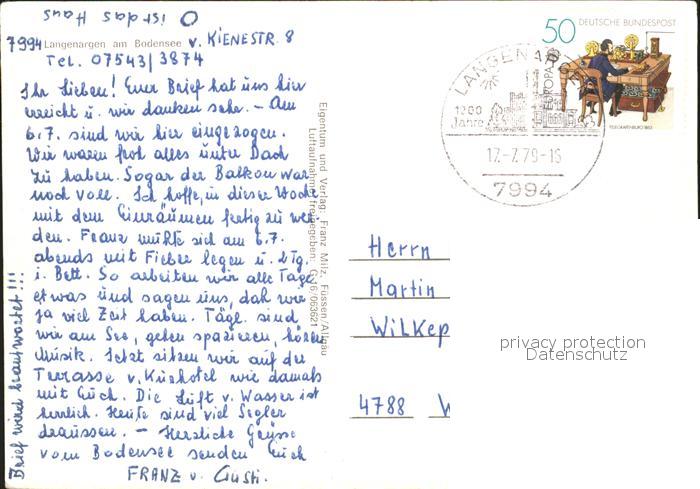 O ist das Haus
7994 Langenargen am Bodensee v. KIENESTR. 8
Tel. 07543/3874
Ihr Lieben! Euer Brief hat uns hier
erreicht u. wir danken sehr. – Am
6.7. sind wir hier eingezogen.
Wir waren froh alles unter Dach
zu haben. Sogar der Balkon war
noch voll. Ich hoffe, in dieser Woche
mit dem Einräumen fertig zu wer
den. Franz mußte sich am 6.7.
abends mit Fieber legen u. 2 Tg.
i. Bett. So arbeiten wir alle Tage
etwas und sagen uns, daß wir
ja viel Zeit haben. Tägl. sind
wir am See, gehen spazieren, hören
Musik. Jetzt sitzen wir auf der
Terrasse v. Kurhotel wie damals
mit Euch. Die Luft v. Wasser ist
herrlich. Heute sind viel Segler
draussen. – Herzliche Grüsse
vom Bodensee senden Euch
FRANZ u. Gusti.
Brief wird beantwortet!!!
Eigentum und Verlag: Franz Milz, Füssen/Allgäu
Luftaufnahme freigegeben: G 16/063621
50 DEUTSCHE BUNDESPOST
LANGENARG
1200
Jahre
EUROPA
17.-7.79-16
7994
Herrn
Martin
Wilkep
4788 W
privacy protection
Datenschutz